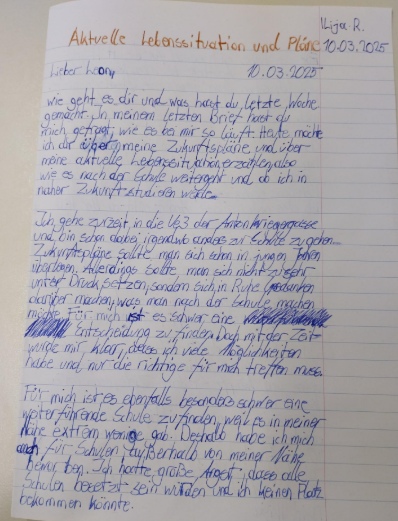 Ilija R.
Aktuelle Lebenssituation und Pläne 10.03.2025
Lieber Leon, 10.03.2025
wie geht es dir und was hast du letzte Woche
gemacht. In meinem letzten Brief hast du
mich gefragt, wie es bei mir so läuft. Heute möchte
ich dir über meine Zukunftspläne und über
meine aktuelle Lebenssituation erzählen, also
wie es nach der Schule weitergeht und ob ich in
naher Zukunft studieren werde.
Ich gehe zurzeit in die der Anton Kriegergasse
und bin schon dabei, irgendwo anders zur Schule zu gehen.
Zukunftspläne sollte man sich schon in jungen Jahren
überlegen. Allerdings sollte man sich nicht zu sehr
unter Druck setzen, sondern sich in Ruhe Gedanken
darüber machen, was man nach der Schule machen
möchte. Für mich ist es schwer eine
Entscheidung zu finden. Doch mit der Zeit
wurde mir klar, dass ich viele Möglichkeiten
habe und nur die richtige für mich treffen muss.
Für mich ist es ebenfalls besonders schwer eine
weiterführende Schule zu finden, weil es in meiner
Nähe extrem wenige gab. Deshalb habe ich mich
auch für Schulen außerhalb von meiner Nähe
beworben. Ich hatte große Angst, dass alle
Schulen besetzt sein würden und ich keinen Platz
bekommen könnte.